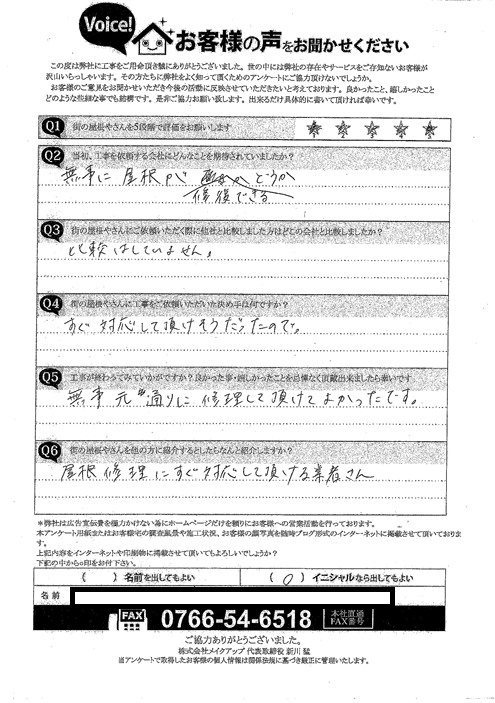 Voice!
お客様の声をお聞かせください
この度は弊社に工事をご用命頂き誠にありがとうございます。世の中には弊社の存在やサービスをご存知ないお客様が
沢山いらっしゃいます。その方たちに弊社をよく知って頂くためのアンケートにご協力頂けないでしょうか。
お客様のご意見をお聞かせいただき今後の活動に反映させていただきたいと考えております。良かったこと、嬉しかったこと
どのような些細な事でも結構です。是非ご協力お願い致します。出来るだけ具体的に書いて頂ければ幸いです。
Q1 街の屋根やさんを5段階で評価をお願いします ★ ★ ★ ★ ★
Q2 当初、工事を依頼する会社にどんなことを期待されていましたか?
無事に屋根が どうか
修復できる
Q3 街の屋根やさんにご依頼いただく際に他社と比較しました方はどこの会社と比較しましたか?
比較はしていません。
Q4 街の屋根やさんに工事をご依頼いただいた決め手は何ですか?
すぐ対応して頂けそうだったので。
Q5 工事が終わってみていかがですか?良かった事・嬉しかったことを忌憚なく頂戴出来ましたら幸いです
無事元通りに修理して頂けてよかったです。
Q6 街の屋根やさんを他の方に紹介するとしたらなんと紹介しますか?
屋根修理にすぐ対応して頂ける業者さん
*弊社は広告宣伝費を極力かけない為にホームページだけを頼りにお客様への営業活動を行っております。
本アンケート用紙またはお客様宅の調査風景や施工状況、お客様の顔写真を随時ブログ形式のインターネットに掲載させて頂いておりま
す。
上記内容をインターネットや印刷物に掲載させて頂いてもよろしいでしょうか?
下記の中から○印をお付け下さい。
( ) 名前を出してもよい ( ○ ) イニシャルなら出してもよい
名前
FAX 0766-54-6518 本社直通 FAX番号
ご協力ありがとうございました。
株式会社メイクアップ 代表取締役 新川 猛
当アンケートで取得したお客様の個人情報は関係法規に基づき厳正に管理いたします。